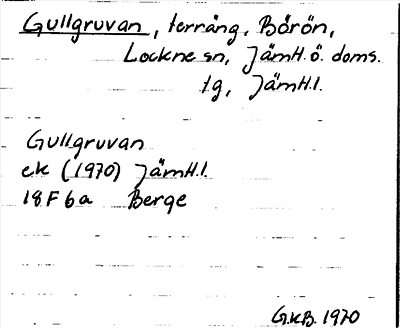 Gullgruvan, terräng, Börön,
Lockne sn, Jämtl. ö. doms.
lg, Jämtl. l.
Gullgruvan
ek (1970) Jämtl. l.
18F6a Berge
G.K.B. 1970